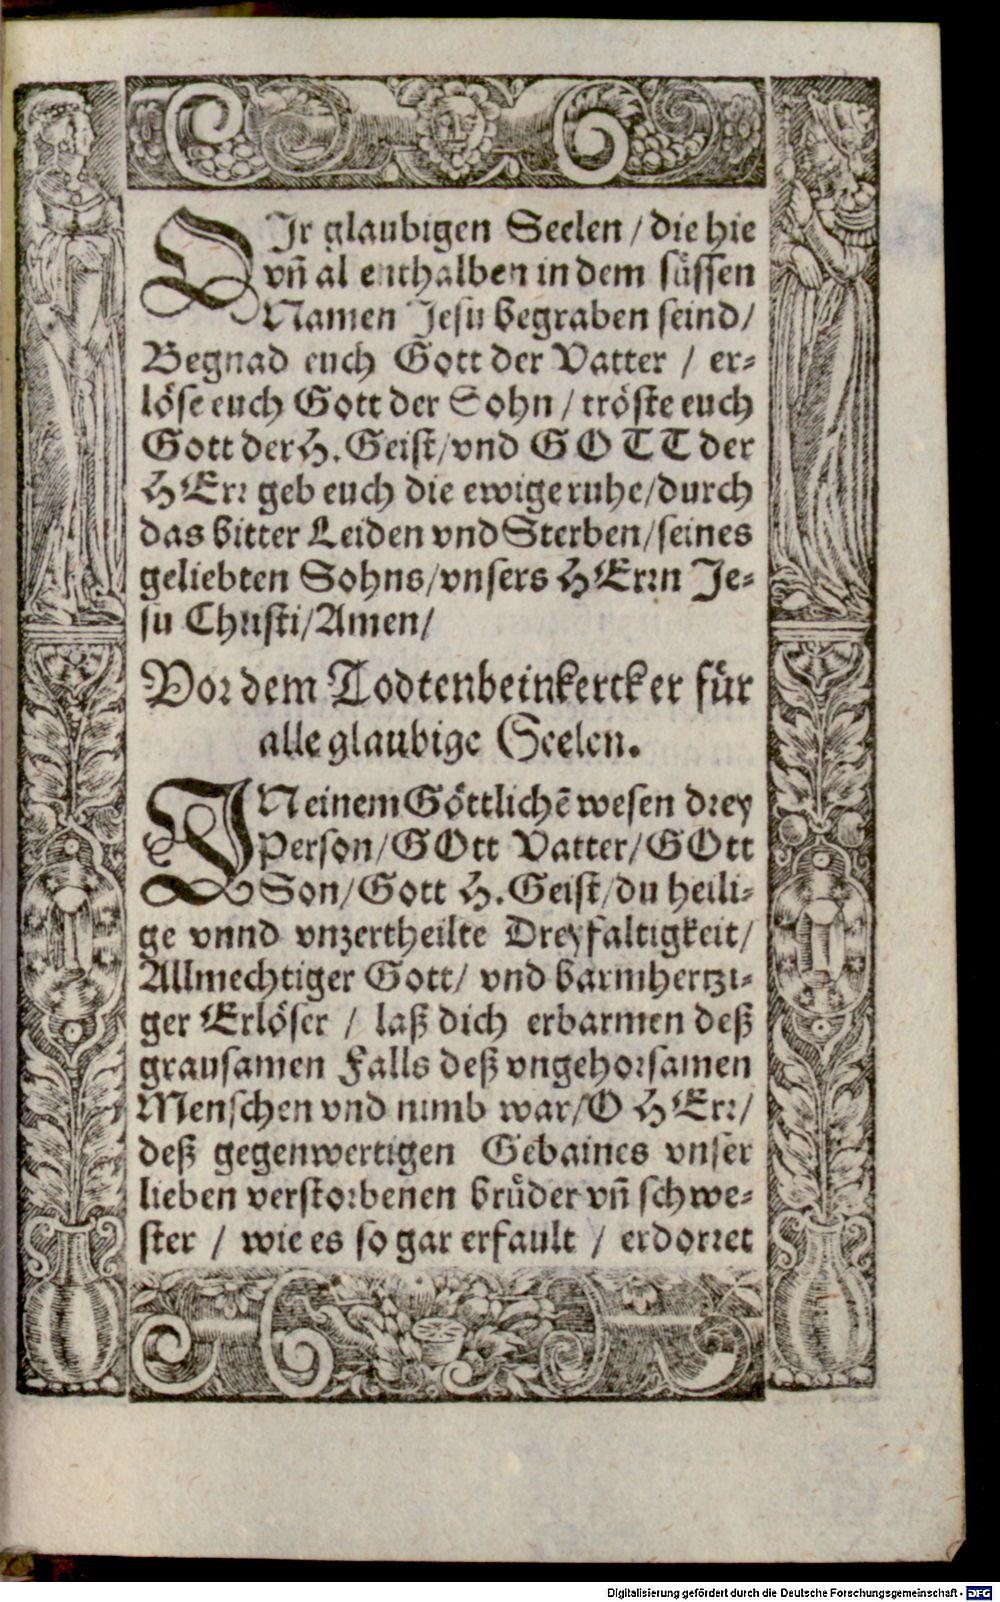 OIr glaubigen Seelen / die hie
vñ al enthalben in dem süssen
Namen Jesu begraben seind/
Begnad euch Gott der Vatter / er-
löse euch Gott der Sohn / tröste euch
Gott der H. Geist/vnd GOTT der
HErr geb euch die ewige ruhe/durch
das bitter Leiden vnd Sterben/seines
geliebten Sohns/vnsers HErrn Je-
su Christi/Amen/
Vor dem Todtenbeinkercker für
alle glaubige Seelen.
INeinem Göttlichẽ wesen drey
Person/GOtt Vatter/GOtt
Son/Gott H. Geist/du heili-
ge vnnd vnzertheilte Dreyfaltigkeit/
Allmechtiger Gott/ vnd barmhertzi-
ger Erlöser / laß dich erbarmen deß
grausamen Falls deß vngehorsamen
Menschen vnd nimb war/O HErr/
deß gegenwertigen Gebaines vnser
lieben verstorbenen brüder vñ schwe-
ster / wie es so gar erfault / erdorret
Digitalisierung gefördert durch die Deutsche Forschungsgemeinschaft - DFG